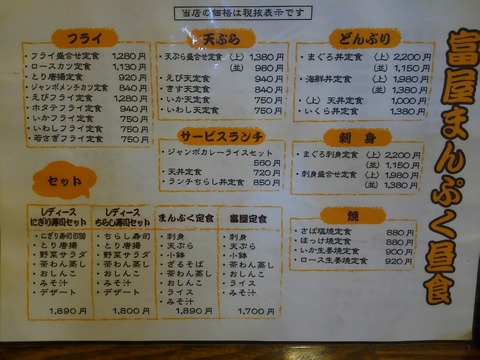 当店の価格は税抜表示です
富屋まんぷく昼食
フライ
・フライ盛合せ定食 1,280円
・ロースカツ定食 1,130円
・とり唐揚定食 920円
・ジャンボメンチカツ定食 840円
・えびフライ定食 1,280円
・ホタテフライ定食 940円
・いかフライ定食 750円
・いわしフライ定食 750円
・若さぎフライ定食 750円
天ぷら
・天ぷら盛合せ定食 (上) 1,380円
(並) 980円
・えび天定食 940円
・きす天定食 840円
・いか天定食 750円
・いわし天定食 750円
どんぶり
・まぐろ丼定食 (上) 2,200円
(並) 1,150円
・海鮮丼定食 (上) 1,980円
(並) 1,380円
・(上) 天丼定食 1,000円
・いくら丼定食 1,380円
サービスランチ
・ジャンボカレーライスセット
560円
・天丼定食 720円
・ランチちらし丼定食 850円
刺身
・まぐろ刺身定食 (上) 2,200円
(並) 1,150円
・刺身盛合せ定食 (上) 1,980円
(並) 1,380円
セット
レディース
にぎり寿司セット
・にぎり寿司6個
・とり唐揚
・野菜サラダ
・茶わん蒸し
・おしんこ
・みそ汁
・デザート
1,890円
レディース
ちらし寿司セット
・ちらし寿司
・とり唐揚
・野菜サラダ
・茶わん蒸し
・おしんこ
・みそ汁
・デザート
1,800円
まんぷく定食
・刺身
・天ぷら
・小鉢
・ざるそば
・茶わん蒸し
・おしんこ
・ライス
・みそ汁
1,890円
富屋定食
・刺身
・天ぷら
・小鉢
・茶わん蒸し
・おしんこ
・ライス
・みそ汁
1,700円
焼
・さば塩焼定食 880円
・ほっけ焼定食 880円
・いか生姜焼定食 900円
・ロース生姜焼定食 920円